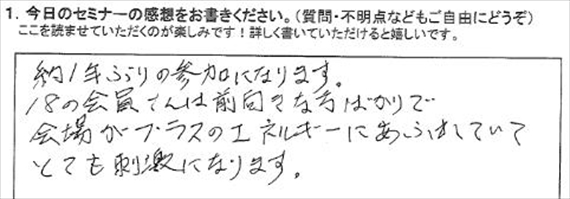 1. 今日のセミナーの感想をお書きください。(質問・不明点などもご自由にどうぞ)
ここを読ませていただくのが楽しみです!詳しく書いていただけると嬉しいです。
約1年ぶりの参加になります。
18の会員さんは前向きな方ばかりで
会場がプラスのエネルギーにあふれていて
とても刺激になります。